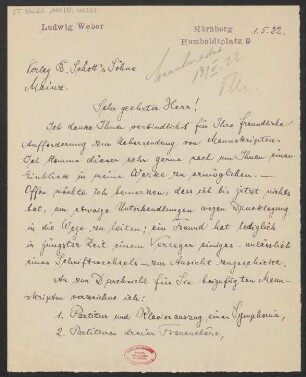 Ludwig Weber
Nürnberg
Humboldtplatz 9
1.5.22
Verlag B. Schott's Söhne
Mainz.
Sehr geehrter Herr!
Ich danke Ihnen verbindlichst für Ihre freundliche
Aufforderung zur Uebersendung von Manuskripten.
Ich komme dieser sehr gerne nach um Ihnen einen
Einblick in meine Werke zu ermöglichen. –
Offen möchte ich bemerken, dass ich bis jetzt nichts
tat, um etwaige Unterhandlungen wegen Drucklegung
in die Wege zu leiten; ein Freund hat lediglich
in jüngster Zeit einem Verleger einiges anlässlich
eines Schriftwechsels zur Ansicht zugeschickt.
An zur Durchsicht für Sie beigefügten Manu-
skripten verzeichne ich:
1. Partitur und Klavierauszug einer Symphonie,
2. Partituren dreier Frauenchöre,